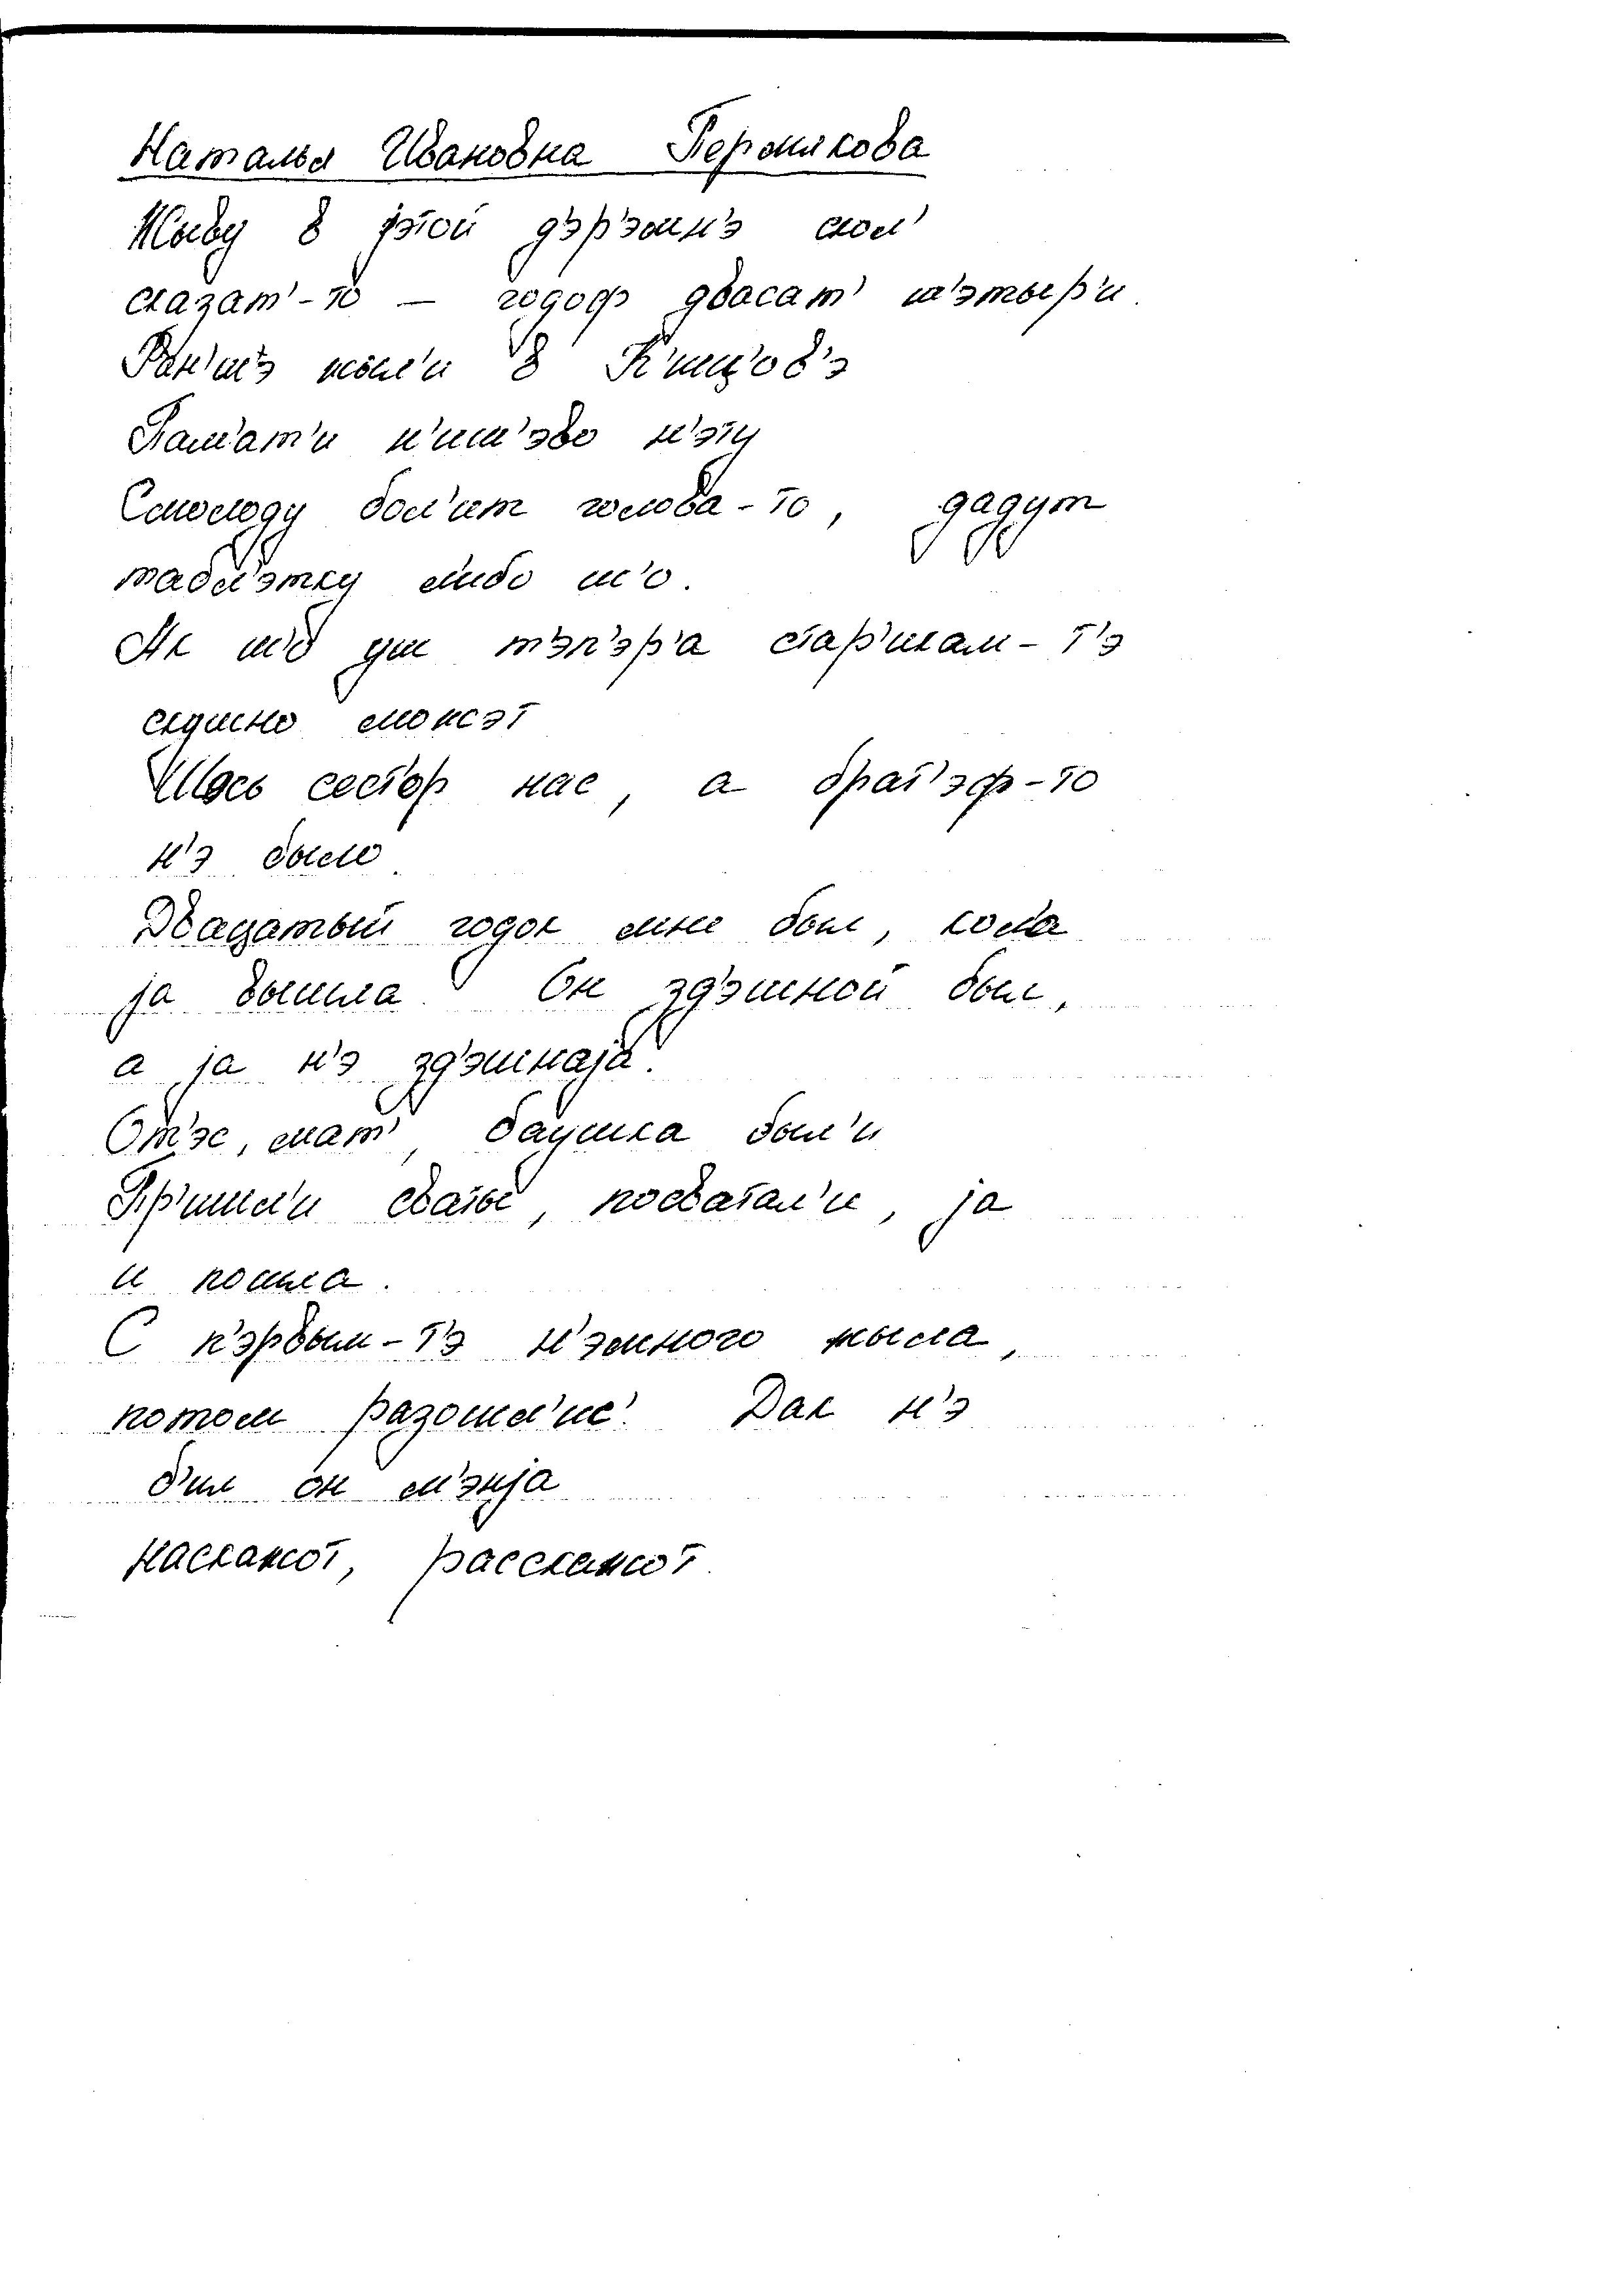 Наталья Ивановна Пермякова
Живу в јэтой дэр'эмн'э скол'
сказат'-то — годоф двасат' ш'этыр'и.
Ран'шэ жыл'и в К'ишц'ов'э
Памат'и н'иш'эво н'эту
Смолоду бол'ит голова-то, дадут
табл'этку либо ш'о.
Ак ш'о уш т'эп'эр'а стар'икам-т'э
скушно можэт
Шэсь сестор нас, а брат'эф-то
н'э было
Двацатый годок мне был, кода
ја вышла. Он зд'эшной был,
а ја н'э зд'эшнаја.
От'эс, мат', баушка был'и
Пр'ишл'и сваты, посватал'и, ја
и пошла.
С п'эрвым-т'э н'эмного жыла,
потом разошл'ис'. Дак н'э
б'ил он м'энја
наскажот, расскажот.